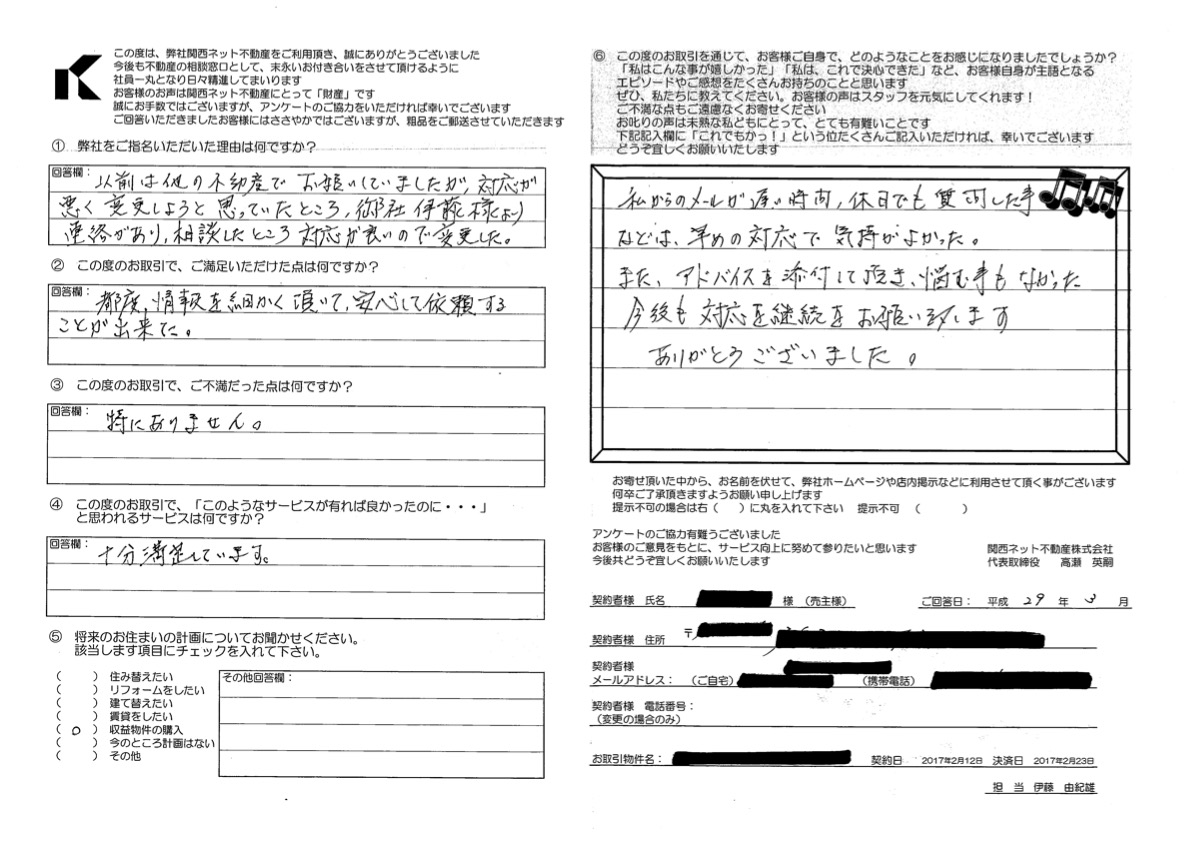 この度は、弊社関西ネット不動産をご利用頂き、誠にありがとうございました
今後も不動産の相談窓口として、末永いお付き合いをさせて頂けるように
社員一丸となり日々精進してまいります
お客様のお声は関西ネット不動産にとって「財産」です
誠にお手数ではございますが、アンケートのご協力をいただければ幸いでございます
ご回答いただきましたお客様にはささやかではございますが、粗品をご郵送させていただきます
① 弊社をご指名いただいた理由は何ですか？
回答欄：
以前は他の不動産でお願いしていましたが、対応が
悪く変更しようと思っていたところ、御社伊藤様より
連絡があり、相談したところ対応が良いので変更した。
② この度のお取引で、ご満足いただけた点は何ですか？
回答欄：
都度、情報を細かく頂いて、安心して依頼する
ことが出来た。
③ この度のお取引で、ご不満だった点は何ですか？
回答欄：
特にありません。
④ この度のお取引で、「このようなサービスが有れば良かったのに・・・」
と思われるサービスは何ですか？
回答欄：
十分満足しています。
⑤ 将来のお住まいの計画についてお聞かせください。
該当します項目にチェックを入れて下さい。
（　　）住み替えたい
（　　）リフォームをしたい
（　　）建て替えたい
（　　）賃貸をしたい
（　○　）収益物件の購入
（　　）今のところ計画はない
（　　）その他
その他回答欄：
⑥ この度のお取引を通じて、お客様ご自身で、どのようなことをお感じになりましたでしょうか？
「私はこんな事が嬉しかった」「私は、これで決心できた」など、お客様自身が主語となる
エピソードやご感想をたくさんお持ちのことと思います
ぜひ、私たちに教えてください。お客様の声はスタッフを元気にしてくれます！
ご不満な点もご遠慮なくお寄せください
お叱りの声は未熟な私どもにとって、とても有難いことです
下記記入欄に「これでもかっ！」という位たくさんご記入いただければ、幸いでございます
どうぞ宜しくお願いいたします
私からのメールが遅い時間、休日でも質問した事
などは、早めの対応で気持がよかった。
また、アドバイスを添付して頂き、悩む事もなかった
今後も対応を継続をお願い致します
ありがとうございました。
お寄せ頂いた中から、お名前を伏せて、弊社ホームページや店内掲示などに利用させて頂く事がございます
何卒ご了承頂きますようお願い申し上げます
提示不可の場合は右（　）に丸を入れて下さい　提示不可　（　　）
アンケートのご協力有難うございました
お客様のご意見をもとに、サービス向上に努めて参りたいと思います
今後共どうぞ宜しくお願いいたします
関西ネット不動産株式会社
代表取締役　高瀬 英嗣
契約者様 氏名　様（売主様）
ご回答日： 平成 29 年 3 月
契約者様 住所　〒
契約者様
メールアドレス：（ご自宅）　（携帯電話）
契約者様 電話番号：
（変更の場合のみ）
お取引物件名：
契約日　2017年2月12日　決済日　2017年2月23日
担 当　伊藤 由紀雄